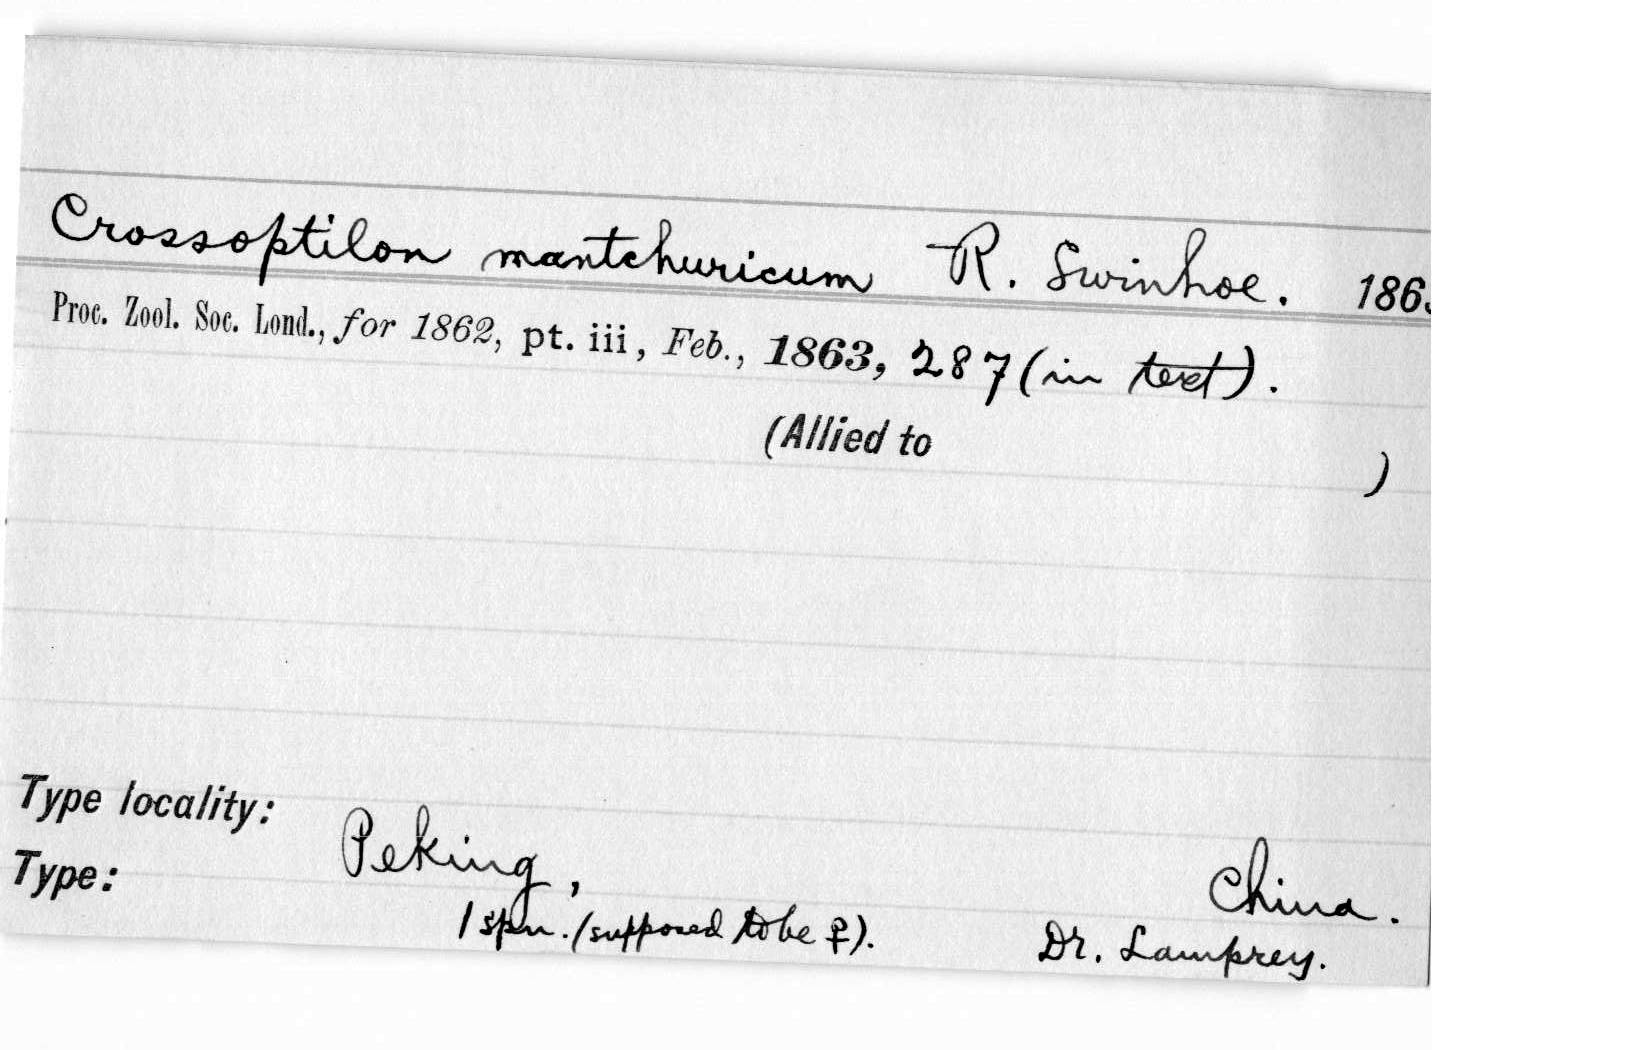 Crossoptilon mantchuricum R. Swinhoe. 186
Proc. Zool. Soc. Lond., for 1862, pt. iii, Feb., 1863, 287 (in text).
(Allied to )
Type locality: Peking, China.
Type: 1 spn. (supposed to be ♀). Dr. Lamprey.